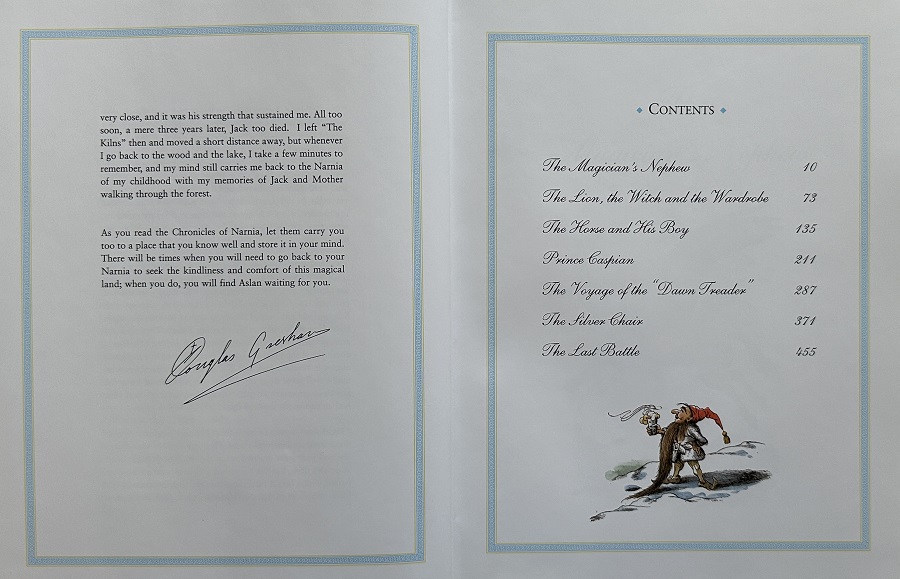 very close, and it was his strength that sustained me. All too
soon, a mere three years later, Jack too died. I left "The
Kilns" then and moved a short distance away, but whenever
I go back to the wood and the lake, I take a few minutes to
remember, and my mind still carries me back to the Narnia
of my childhood with my memories of Jack and Mother
walking through the forest.
As you read the Chronicles of Narnia, let them carry you
too to a place that you know well and store it in your mind.
There will be times when you will need to go back to your
Narnia to seek the kindliness and comfort of this magical
land; when you do, you will find Aslan waiting for you.
Douglas Gresham
Contents
The Magician's Nephew 10
The Lion, the Witch and the Wardrobe 73
The Horse and His Boy 135
Prince Caspian 211
The Voyage of the "Dawn Treader" 287
The Silver Chair 371
The Last Battle 455